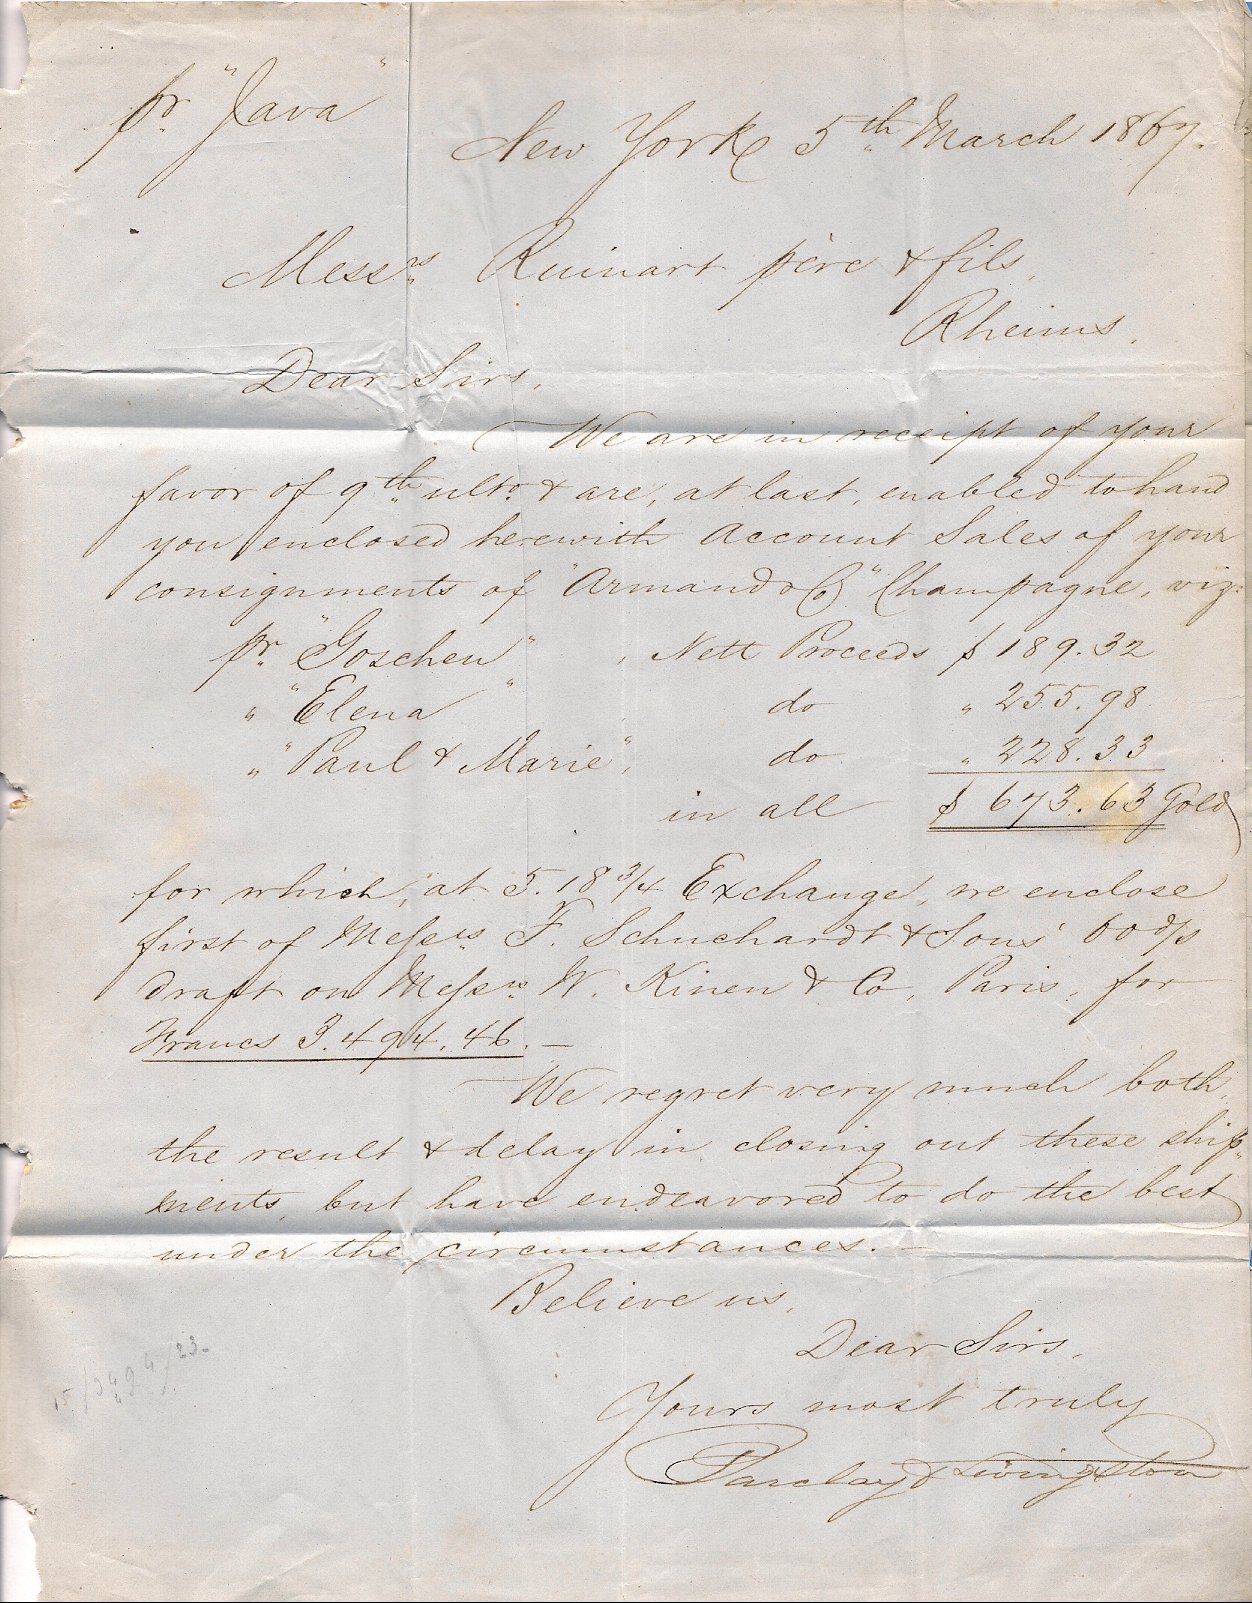 pr. "Java"
New York 5th March 1867.
Messrs Ruinart père & fils,
Rheims.
Dear Sirs,
We are in receipt of your
favor of 9th ulto. & are, at last, enabled to hand
you enclosed herewith Account Sales of your
consignments of "Armand & Co" Champagne, viz:
pr. "Goschen", Nett Proceeds $ 189.32
" "Elena" do " 255.98
" "Paul & Marie", do " 228.33
in all $ 673.63 Gold
for which, at 5.18 3/4 Exchange, we enclose
first of Messrs F. Schuchardt & Sons' 60 d/s
draft on Messrs. W. Kinen & Co, Paris, for
Francs 3.494.46. —
We regret very much both
the result & delay in closing out these ship-
ments, but have endeavored to do the best
under the circumstances. —
Believe us,
Dear Sirs,
Yours most truly
Barclay & Livingston